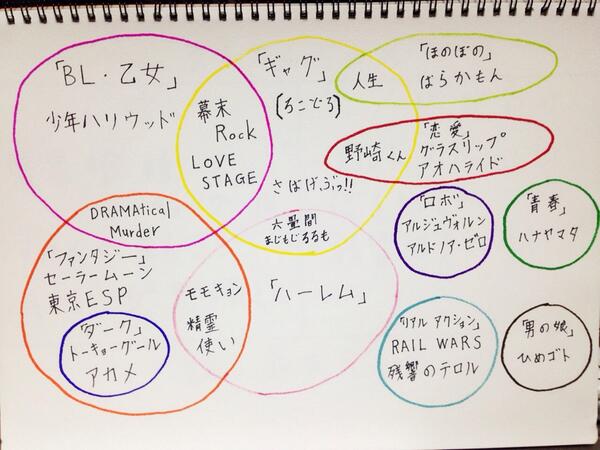 「BL・乙女」
少年ハリウッド
幕末
Rock
LOVE
STAGE
「ギャグ」
(ろこどる)
さばげぶっ!!
人生
「ほのぼの」
ばらかもん
野崎くん
「恋愛」
グラスリップ
アオハライド
DRAMAtical
Murder
「ファンタジー」
セーラームーン
東京ESP
「ダーク」
トーキョーグール
アカメ
六畳間
まじもじるるも
モモキュン
精霊
使い
「ハーレム」
「ロボ」
アルジェヴォルン
アルドノア・ゼロ
「青春」
ハナヤマタ
「リアル アクション」
RAIL WARS
残響のテロル
「男の娘」
ひめゴト